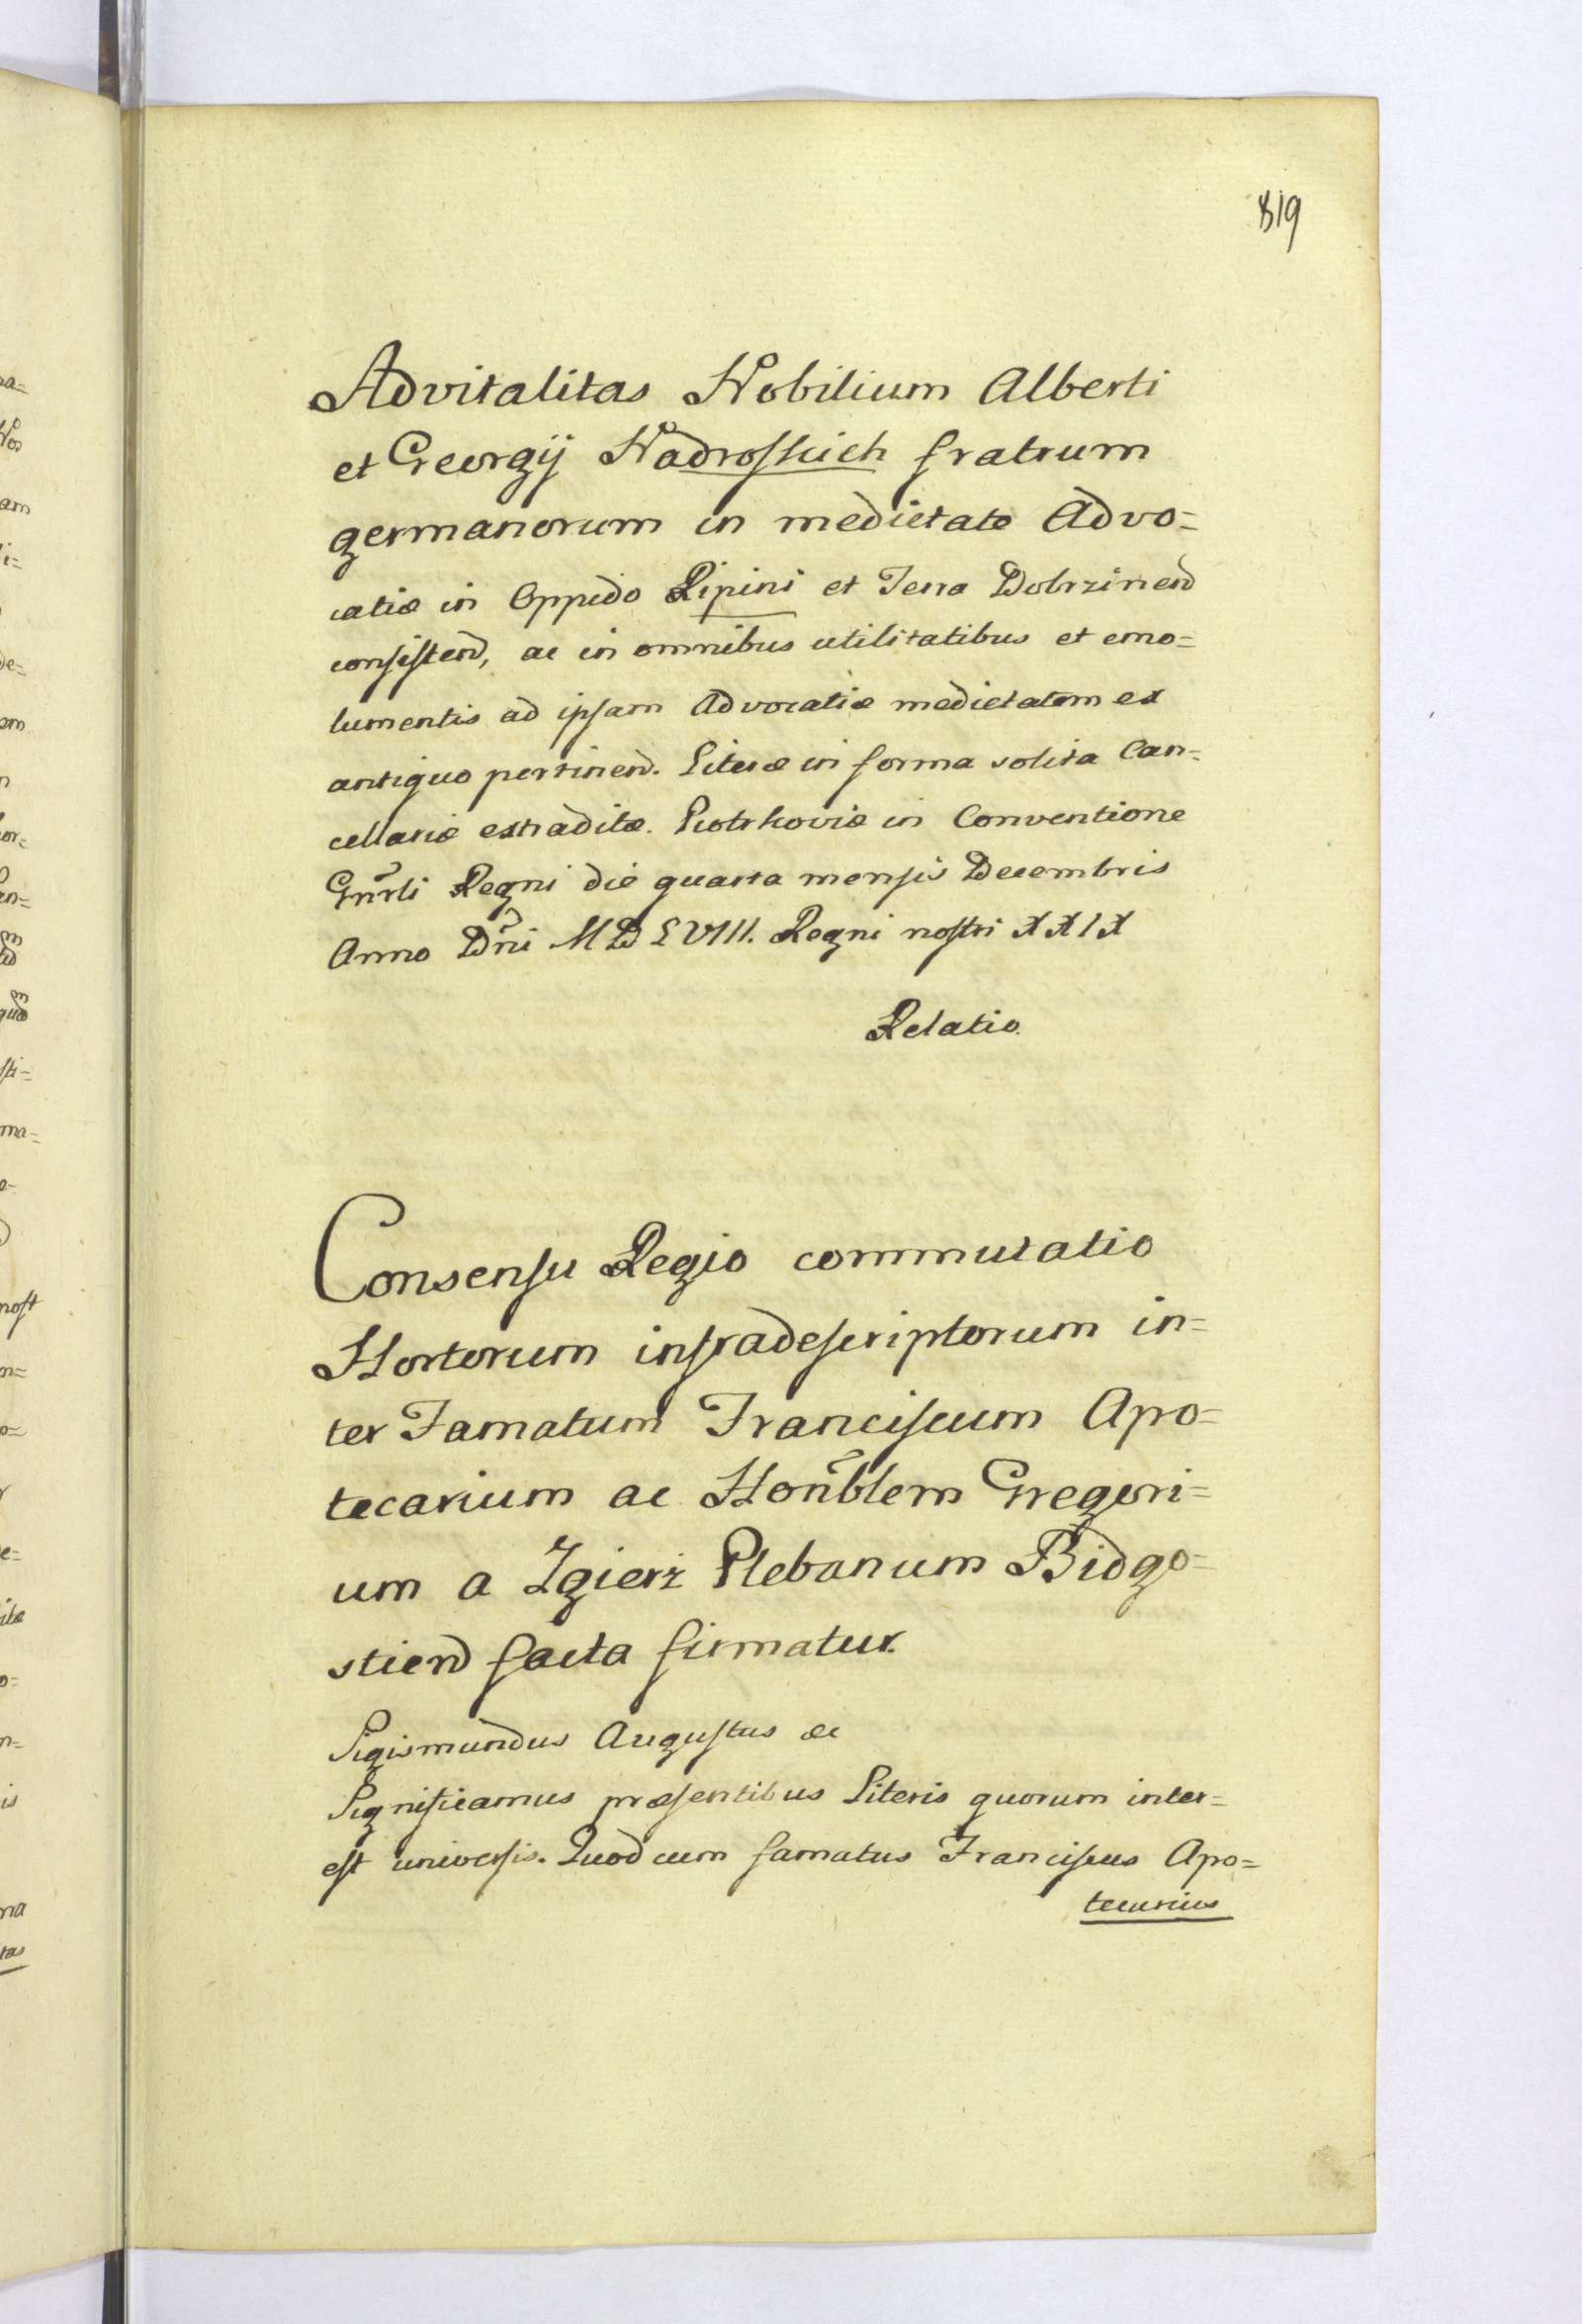 819
Advitalitas Nobilium Alberti
et Georgij Nadroskich fratrum
germanorum in medietate Advo=
catiæ in Oppido Ripini et Terra Dobrzinen
consisten, ac in omnibus utilitatibus et emo=
lumentis ad ipsam Advocatiæ medietatem ex
antiquo pertinen. Literæ in forma solita Can=
cellariæ extraditæ. Piotrkoviæ in Conventione
Gnrli Regni die quarta mensis Decembris
Anno Dni MDLVIII. Regni nostri XXIX
Relatio.
Consensu Regio commutatio
Hortorum infradescriptorum in=
ter Famatum Franciscum Apo=
tecarium ac Honblem Gregori=
um a Zgierz Plebanum Bidgo=
stien facta firmatur.
Sigismundus Augustus &c
Significamus præsentibus Literis quorum inter=
est universis. Quod cum famatus Franciscus Apo=
tecarius